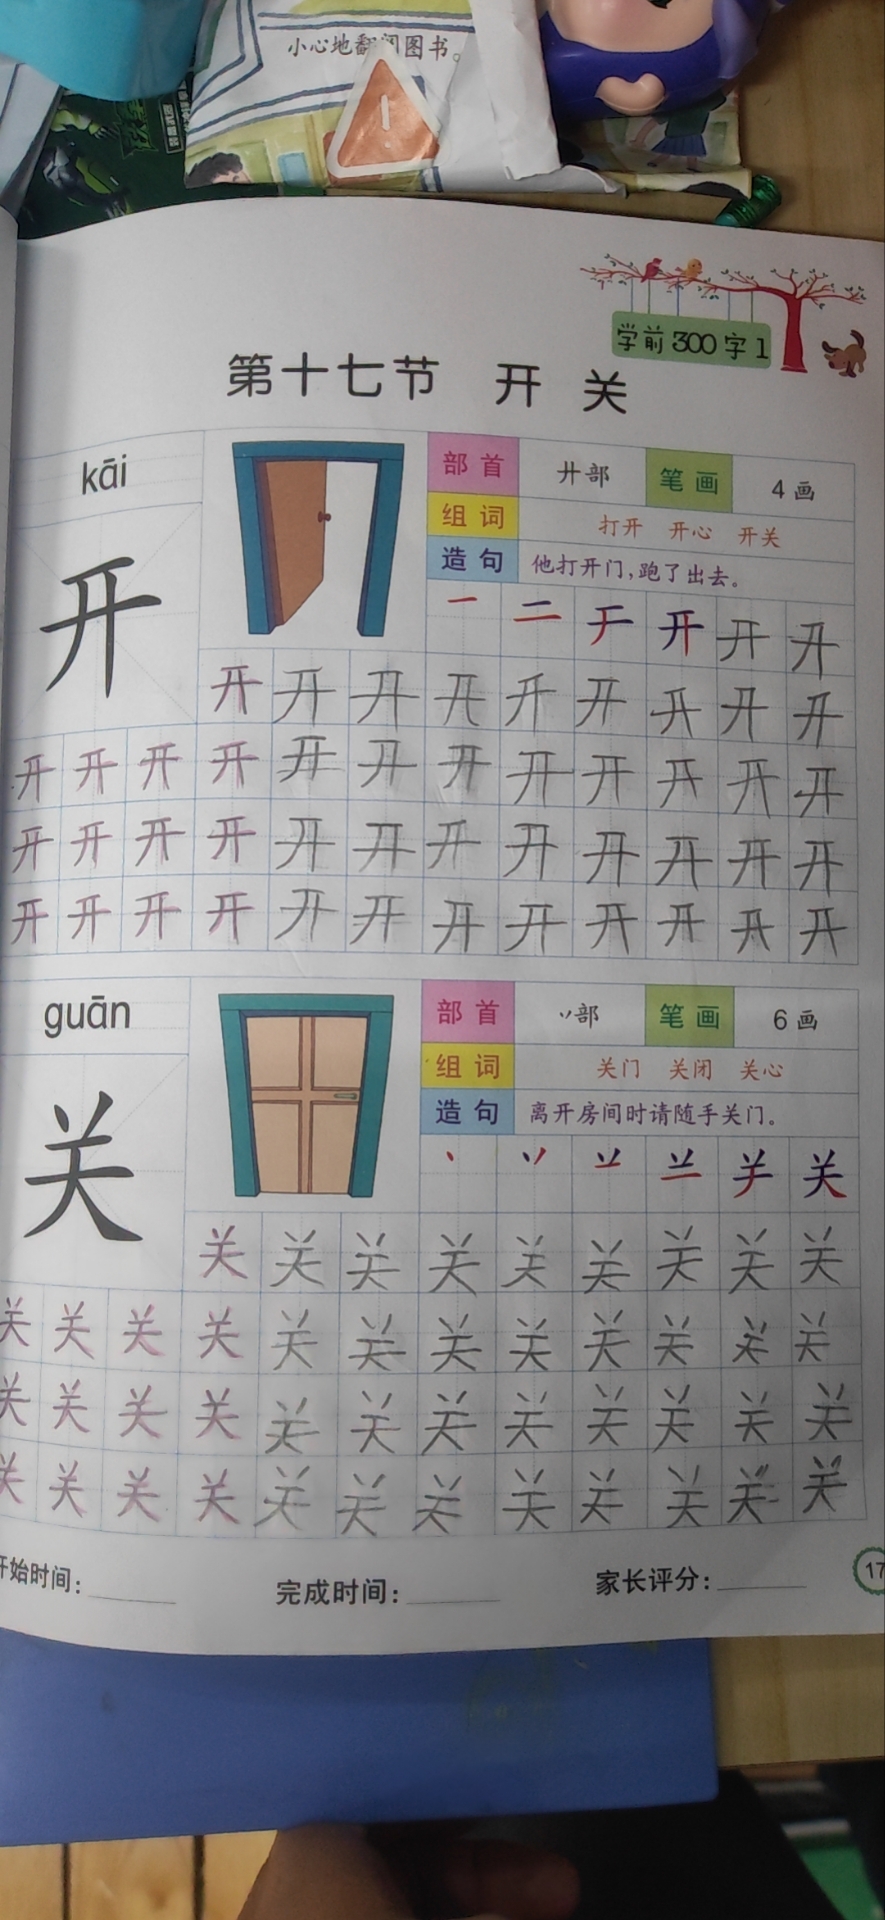 小心地翻阅图书。
学前300字1
第十七节 开 关
kāi
部首 廾部 笔画 4画
组词 打开 开心 开关
造句 他打开门,跑了出去。
开
一 二 于 开 开 开
开 开 开 开 开 开 开 开 开
开 开 开 开 开 开 开 开 开 开 开 开
开 开 开 开 开 开 开 开 开 开 开 开
开 开 开 开 开 开 开 开 开 开 开 开
guān
部首 丷部 笔画 6画
组词 关门 关闭 关心
造句 离开房间时请随手关门。
关
关
关 关 关 关 关 关 关 关 关
关 关 关 关 关 关 关 关 关 关 关 关
关 关 关 关 关 关 关 关 关 关 关 关
关 关 关 关 关 关 关 关 关 关 关 关
开始时间: 完成时间: 家长评分:
17